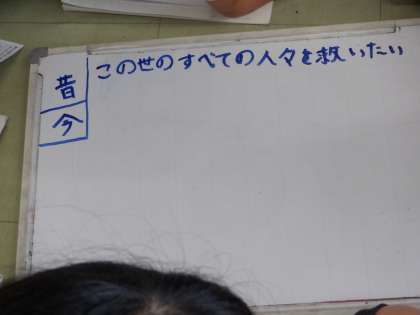 昔 この世のすべての人々を救いたい
今